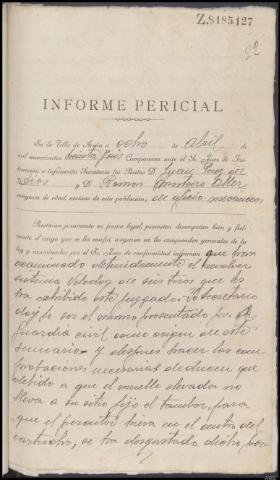 Z.8185.127
92
INFORME PERICIAL
En la Villa de a ocho de Abril de
mil novecientos treinta y seis Comparecen ante el Sr. Juez de
Instrucción e infrascrito Secretario los Peritos D. Juan de
Dios y D. Ramón
mayores de edad, vecinos de esta población, de oficio mecánicos,
Prestan juramento en forma legal, prometen desempeñar bien y fiel-
mente el cargo que se les confía aseguran no les comprenden generales de la
ley y examinados por el Sr. Juez de conformidad informan que han
examinado detenidamente el revolver
sistema Velodog de seis tiros que les
ha exhibido este juzgado. Yo Secretario
doy fe ser el mismo presentado por la
Guardia civil como origen de este
sumario y despues hacer las com
probaciones necesarias deducen que
debido a que el muelle elevador no
lleva a su sitio fijo el tambor, para
que el percutor hiera en el centro del
cartucho, se ha desgastado dicho per